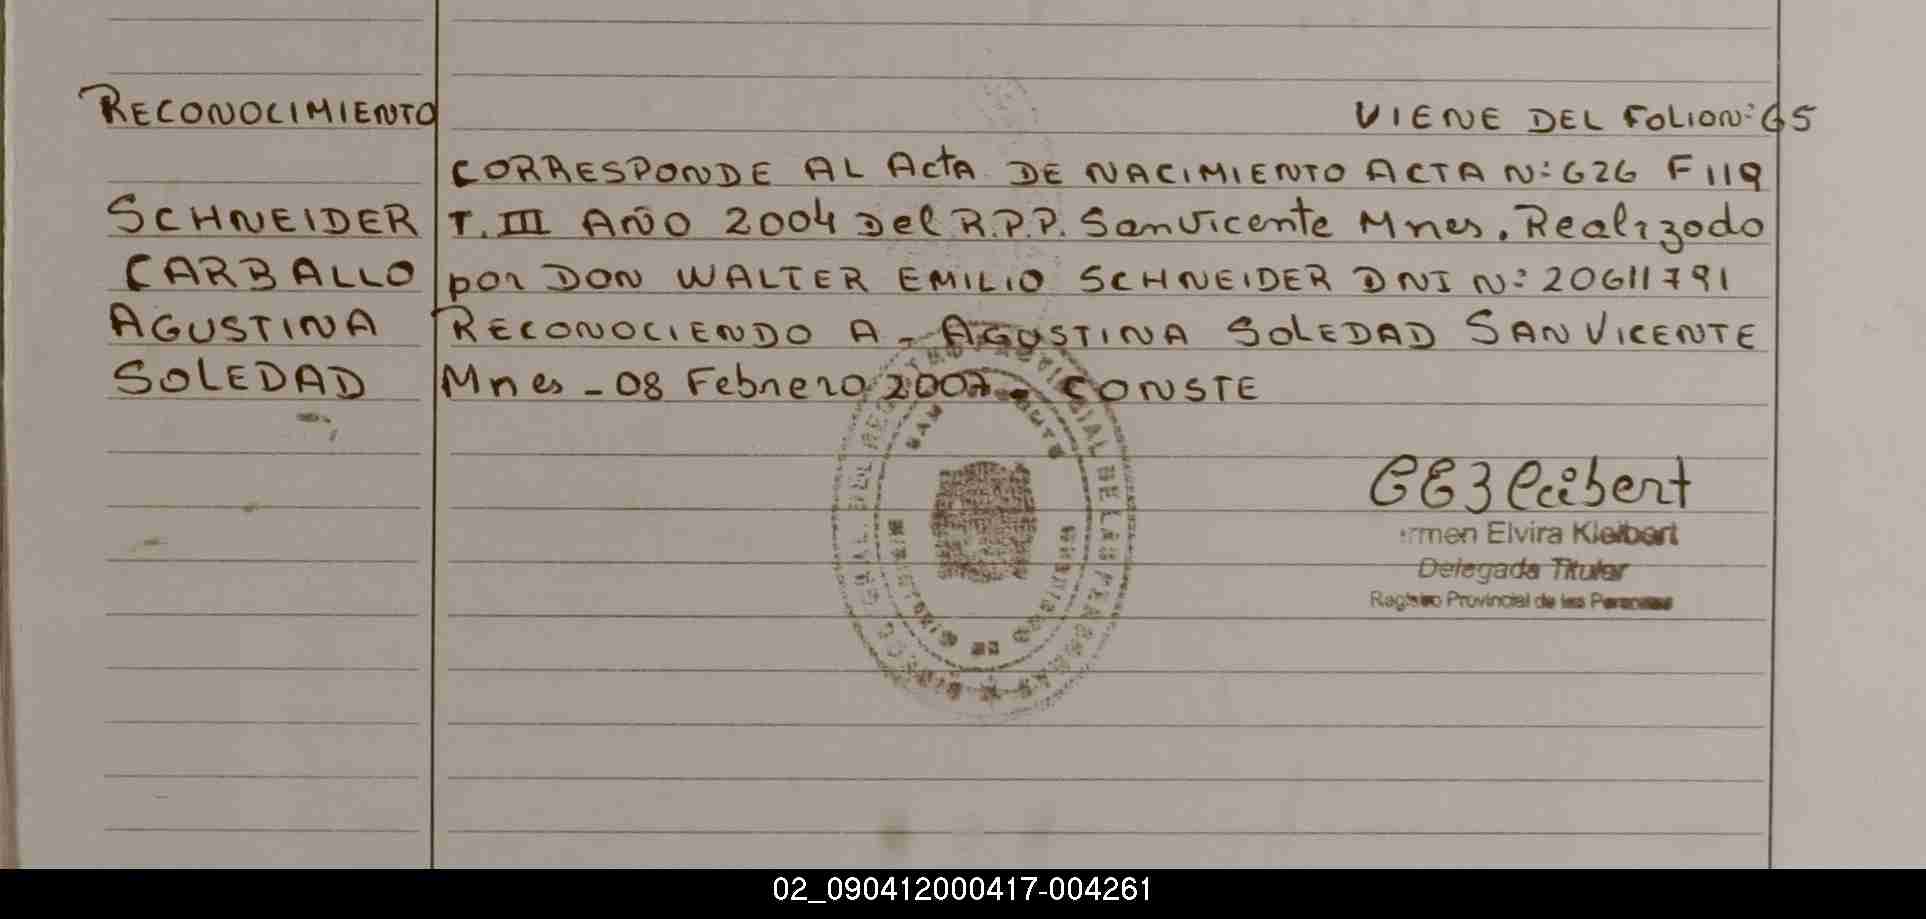 RECONOCIMIENTO
VIENE DEL FOLION: 65
CORRESPONDE AL ActA DE NACIMIENTO ACTA N: 626 F 119
SCHNEIDER
T. III AÑO 2004 Del R.P.P. San Vicente Mnes. Realizado
CARBALLO
por DON WALTER EMILIO SCHNEIDER DNI N: 20611791
AGUSTINA
RECONOCIENDO A - AGUSTINA SOLEDAD SAN VICENTE
SOLEDAD
Mnes - 08 Febrero 2007 - CONSTE
rmen Elvira Kleibert
Delegada Titular
Registro Provincial de las Personas
02_090412000417-004261